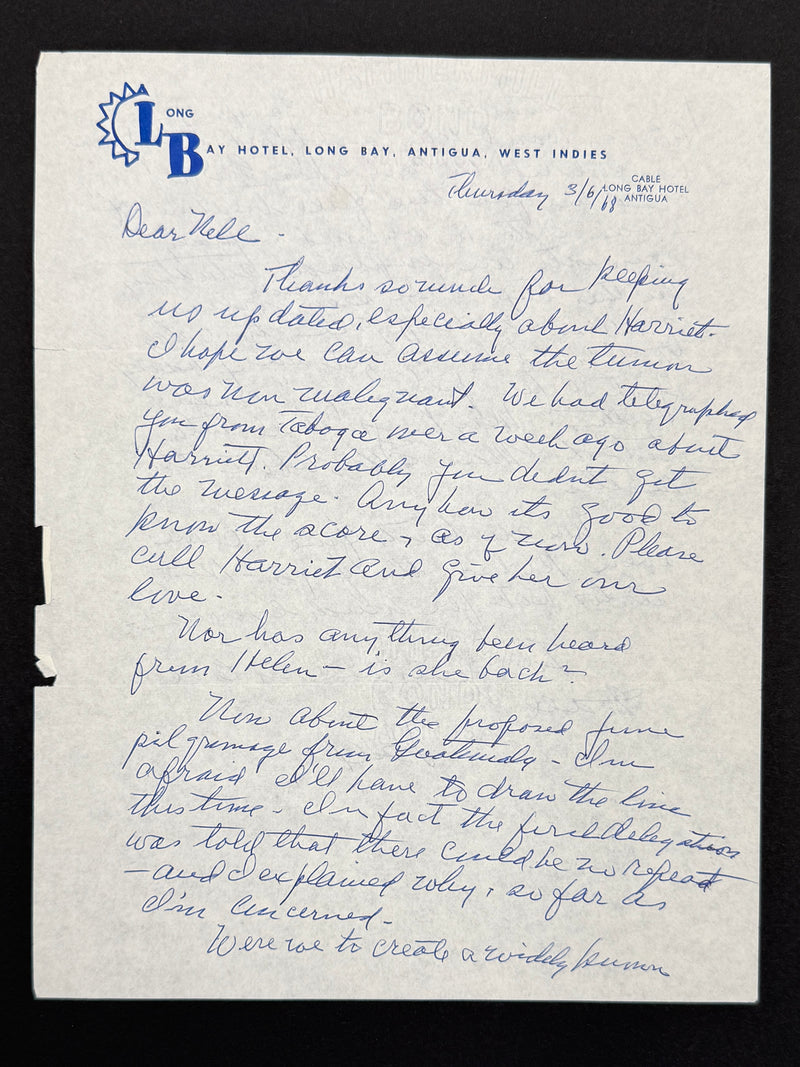 LONG
BAY HOTEL, LONG BAY, ANTIGUA, WEST INDIES
CABLE
LONG BAY HOTEL
ANTIGUA
Thursday 3/6/68
Dear Nell -
Thanks so much for keeping
us updated, especially about Harriet.
I hope we can assume the tumor
was non malignant. We had telegraphed
you from Tobago over a week ago about
Harriett. Probably you didnt get
the message. Anyhow its good to
know the score, as of now. Please
call Harriet and give her our
love.
Nor has anything been heard
from Helen - is she back?
Now about the proposed June
pilgrimage from - I'm
afraid I'll have to draw the line
this time - In fact the first delegation
was told that there could be no repeat
- and I explained why, so far as
I'm concerned -
Were we to create a widely known